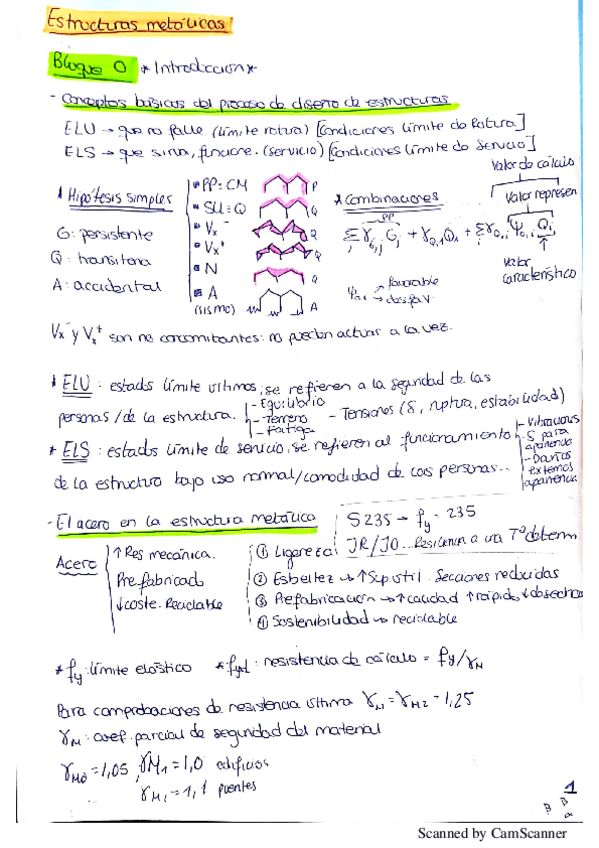 Estructuras metálicas
Bloque 0 * Introducción *
- Conceptos básicos del proceso de diseño de estructuras
ELU → que no falle (límite rotura) [Condiciones límite de Rotura]
ELS → que sirva, funcione. (servicio) [Condiciones límite de Servicio]
* Hipótesis simples
G: persistente
Q: transitoria
A: accidental
PP = CM P
SU = Q Q
Vx⁻ Q
Vx⁺ Q
N Q
A (sismo) A
* Combinaciones
Valor de cálculo
Valor represen
PP
Σ γG,j Gj + γQ,1 Q1 + Σ γQ,i Ψ0,i Qi
favorable
desfav.
Valor característico
Vx⁻ y Vx⁺ son no concomitantes: no pueden actuar a la vez.
* ELU: estados límite últimos, se refieren a la seguridad de las
personas / de la estructura.
- Equilibrio
- Terreno
- Fatiga
- Tensiones (δ, ruptura, estabilidad)
* ELS: estados límite de servicio, se refieren al funcionamiento
de la estructura bajo uso normal/comodidad de las personas...
- Vibraciones
- δ para apariencia
- Daños externos apariencia
- El acero en la estructura metálica
S235 → fy = 235
JR/J0... Resiliencia a una Tª determ
Acero
↑ Res mecánica.
Prefabricado
↓ coste. Reciclable
① Ligereza
② Esbeltez → ↑ Sup útil. Secciones reducidas
③ Prefabricación → ↑ calidad ↑ rápido ↓ desechos
④ Sostenibilidad → reciclable
* fy: límite elástico * fyd: resistencia de cálculo = fy/γM
Para comprobaciones de resistencia última γM = γM2 = 1,25
γM: coef. parcial de seguridad del material
γM0 = 1,05 , γM1 = 1,0 edificios
γM1 = 1,1 puentes
1
Scanned by CamScanner